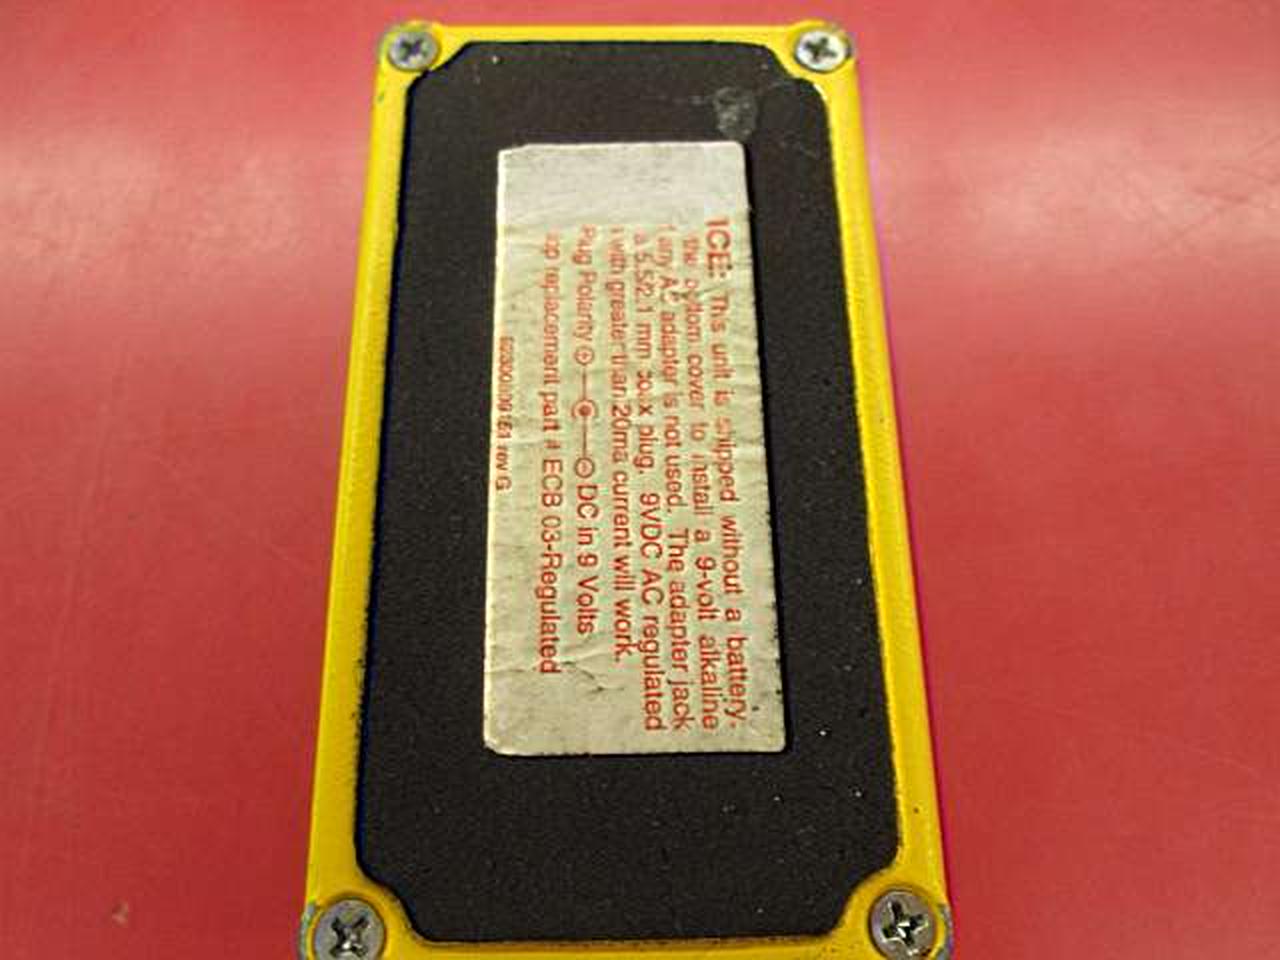 ICE: This unit is shipped without a battery.
the bottom cover to install a 9-volt alkaline
f any AC adapter is not used. The adapter jack
a 5.5/2.1 mm coax plug. 9VDC AC regulated
with greater than 20ma current will work.
Plug Polarity + DC in 9 Volts
op replacement part # ECB 03-Regulated
rev G